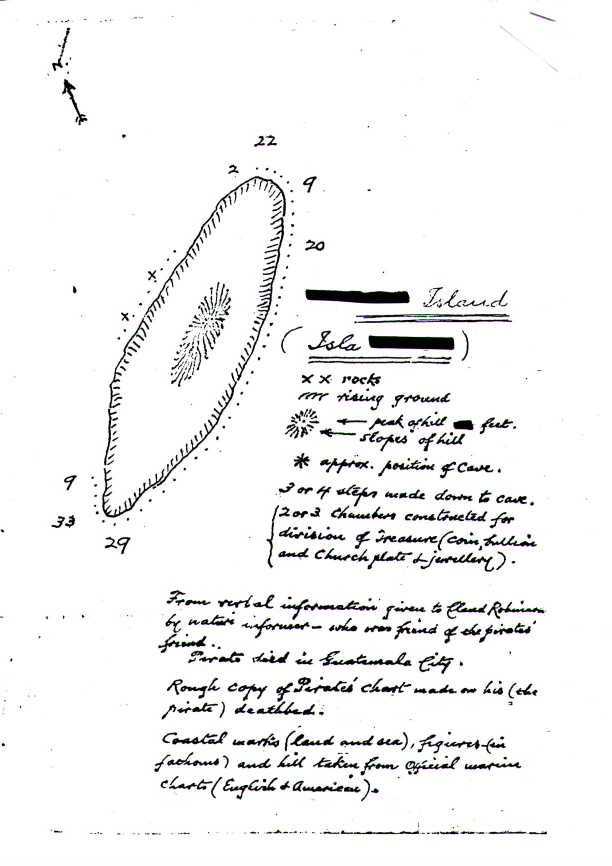 N
22
2
9
20
x
x
Island
( Isla )
x x rocks
rising ground
peak of hill feet.
slopes of hill
* approx. position of Cave.
3 or 4 steps made down to cave.
2 or 3 Chambers constructed for
division of Treasure (Coin, bullion
and Church plate & jewellery).
9
33
29
From verbal information given to Claud Robinson
by native informer - who was friend of the pirates'
friend..
Pirate died in Guatemala City.
Rough copy of Pirates' Chart made on his (the
pirate) deathbed.
Coastal marks (land and sea), figures (in
fathoms) and hill taken from Official marine
charts (English & American).